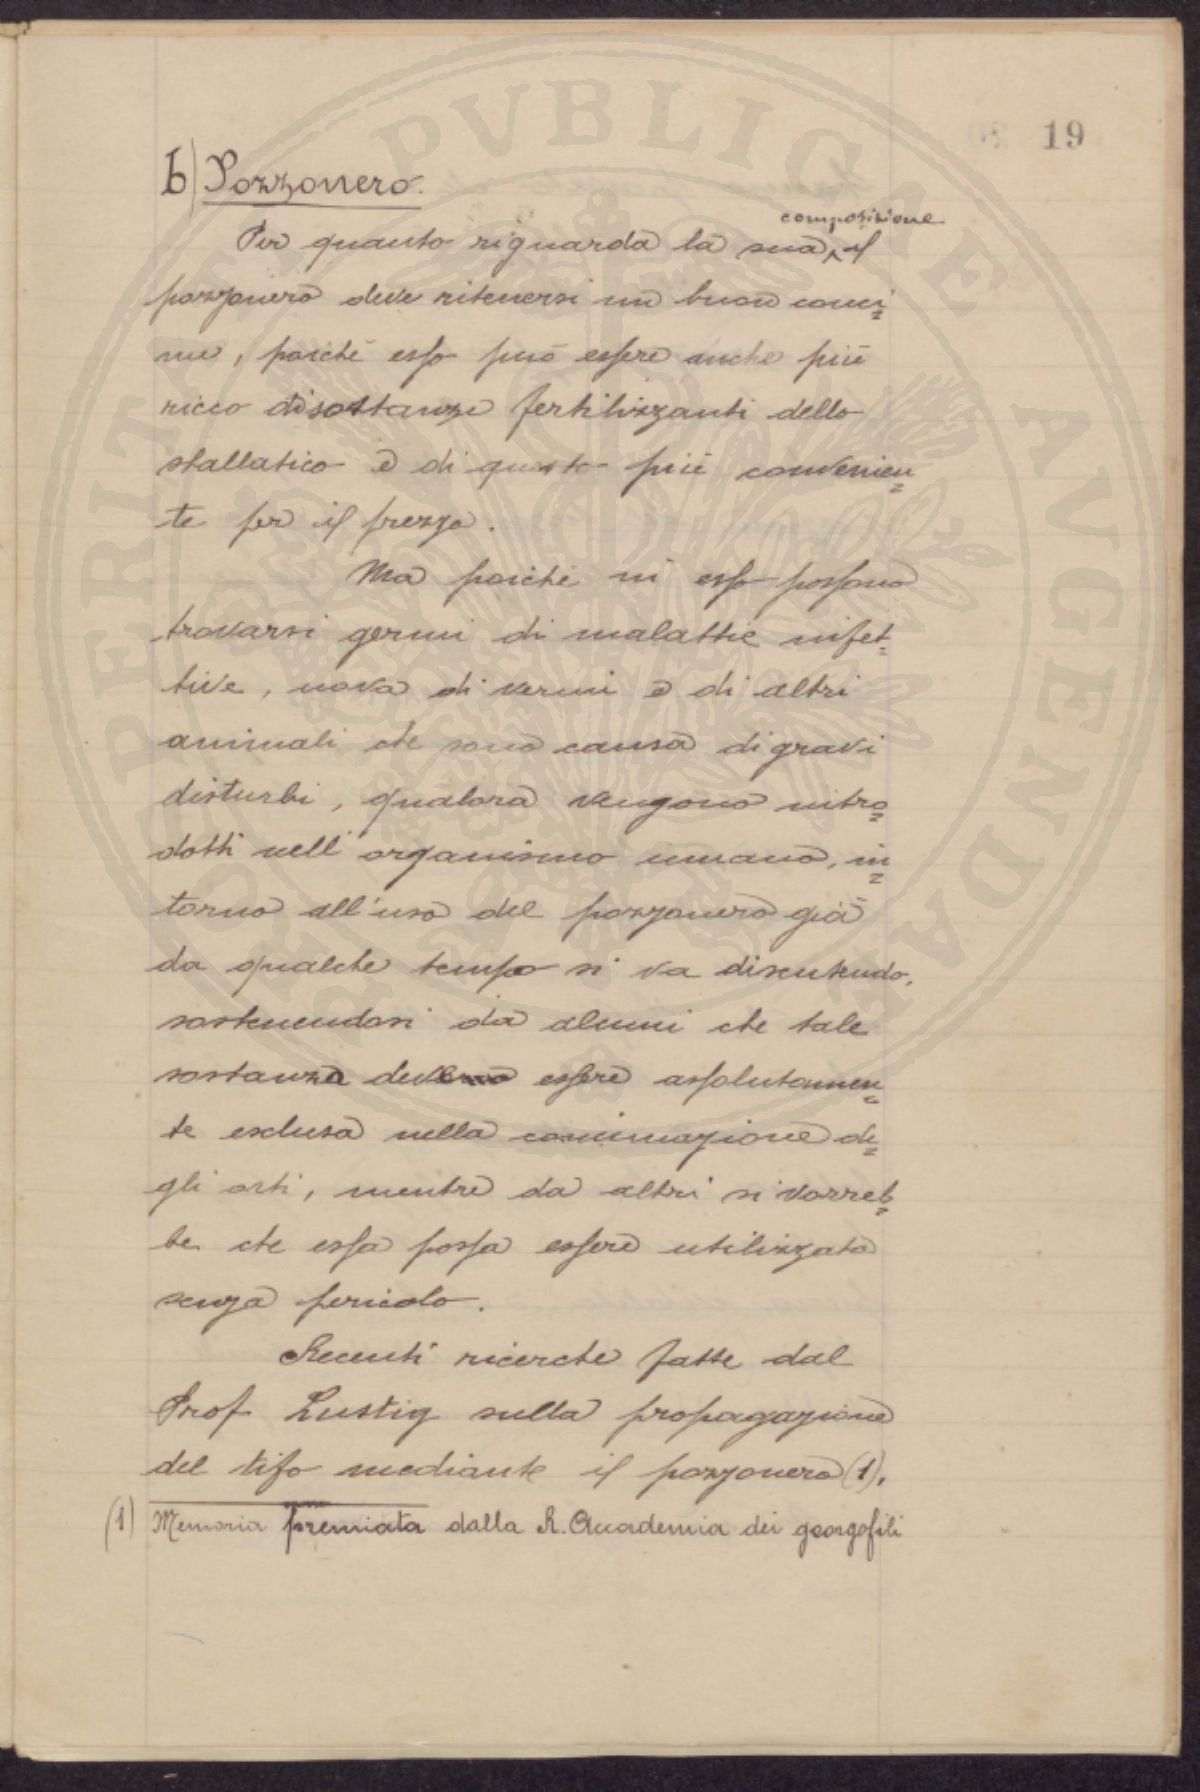 19
b) Pozzonero.
Per quanto riguarda la sua composizione il
pozzonero deve ritenersi un buon conci=
me, poichè esso può essere anche più
ricco di sostanze fertilizzanti dello
stallatico e di questo più convenien=
te per il prezzo.
Ma poichè in esso possono
trovarsi germi di malattie infet=
tive, uova di vermi e di altri
animali che sono causa di gravi
disturbi, qualora vengono intro=
dotti nell'organismo umano, in=
torno all'uso del pozzonero già
da qualche tempo si va discutendo,
sostenendosi da alcuni che tale
sostanza deve essere assolutamen=
te esclusa nella concimazione de=
gli orti, mentre da altri si vorreb=
be che essa possa essere utilizzata
senza pericolo.
Recenti ricerche fatte dal
Prof Lustig sulla propagazione
del tifo mediante il pozzonero (1),
(1) Memoria premiata dalla R. Accademia dei georgofili
PERITAE PVBLICAE AVGENDAE